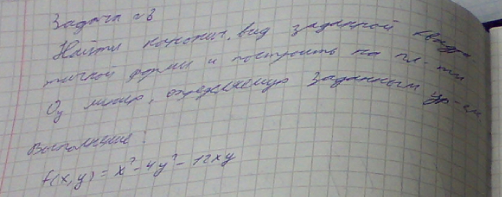 Задача №3
Найти канонич. вид заданной квадра
тичной формы и построить на пл-ти
Oy линию, определяемую заданным ур-ем
Выполнение:
f(x,y) = x² - 4y² - 12xy